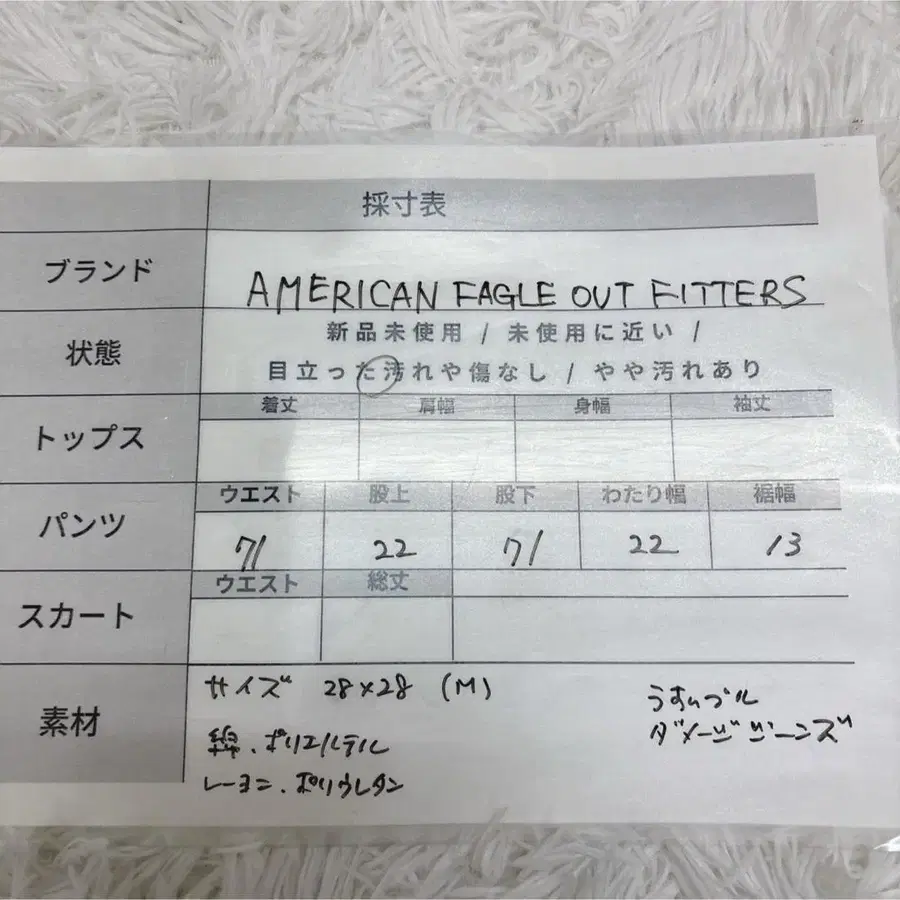 採寸表
ブランド
AMERICAN EAGLE OUT FITTERS
状態
新品未使用 / 未使用に近い /
目立った汚れや傷なし / やや汚れあり
トップス
着丈 肩幅 身幅 袖丈
パンツ
ウエスト 股上 股下 わたり幅 裾幅
71 22 71 22 13
スカート
ウエスト 総丈
素材
サイズ 28×28 (M)
綿.ポリエルテル
レーヨン.ポリウレタン
うすいブル
ダメージジーンズ